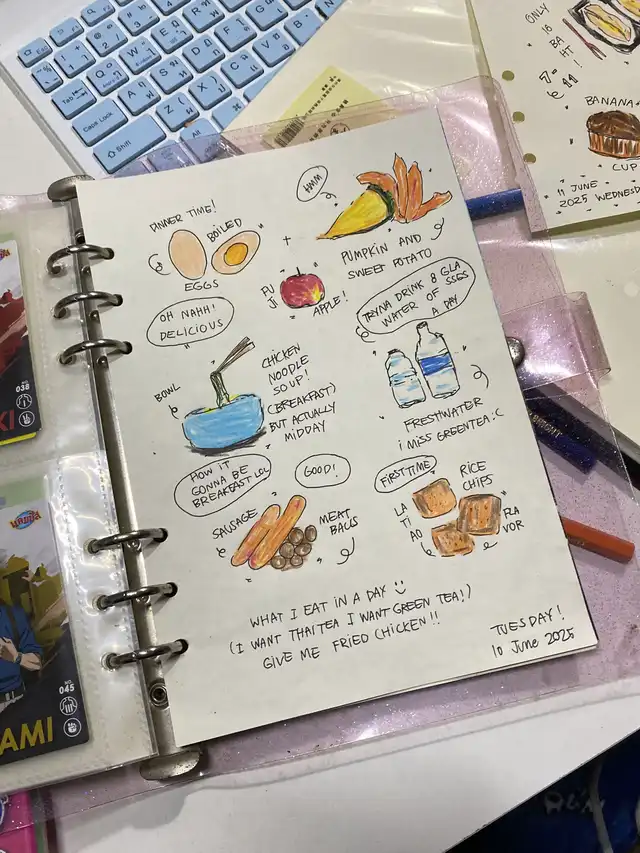 DINNER TIME!
BOILED
EGGS
+
HMM
PUMPKIN AND
SWEET POTATO
FU
JI
APPLE!
OH NAHH!
DELICIOUS
TRYNA DRINK 8 GLA
WATER OF SSES
A DAY
BOWL
CHICKEN
NOODLE
SOUP!
(BREAKFAST)
BUT ACTUALLY
MIDDAY
FRESHWATER
i MISS GREENTEA :C
HOW IT
GONNA BE
BREAKFAST LOL
GOOD!
FIRST TIME
RICE
CHIPS
SAUSAGE
MEAT
BALLS
LA
TI
AO
FLA
VOR
WHAT I EAT IN A DAY
(I WANT THAI TEA I WANT GREEN TEA!)
GIVE ME FRIED CHICKEN!!
TUESDAY!
10 June 2025
ONLY
16
BA
HT
!
BANANA
CUP
11 JUNE
2025 WEDNES
Caps Lock
Shift
Tab
Alt
Q
W
E
R
T
A
S
D
F
G
Z
X
C
V
B
NO.
038
KI
NO.
045
AMI